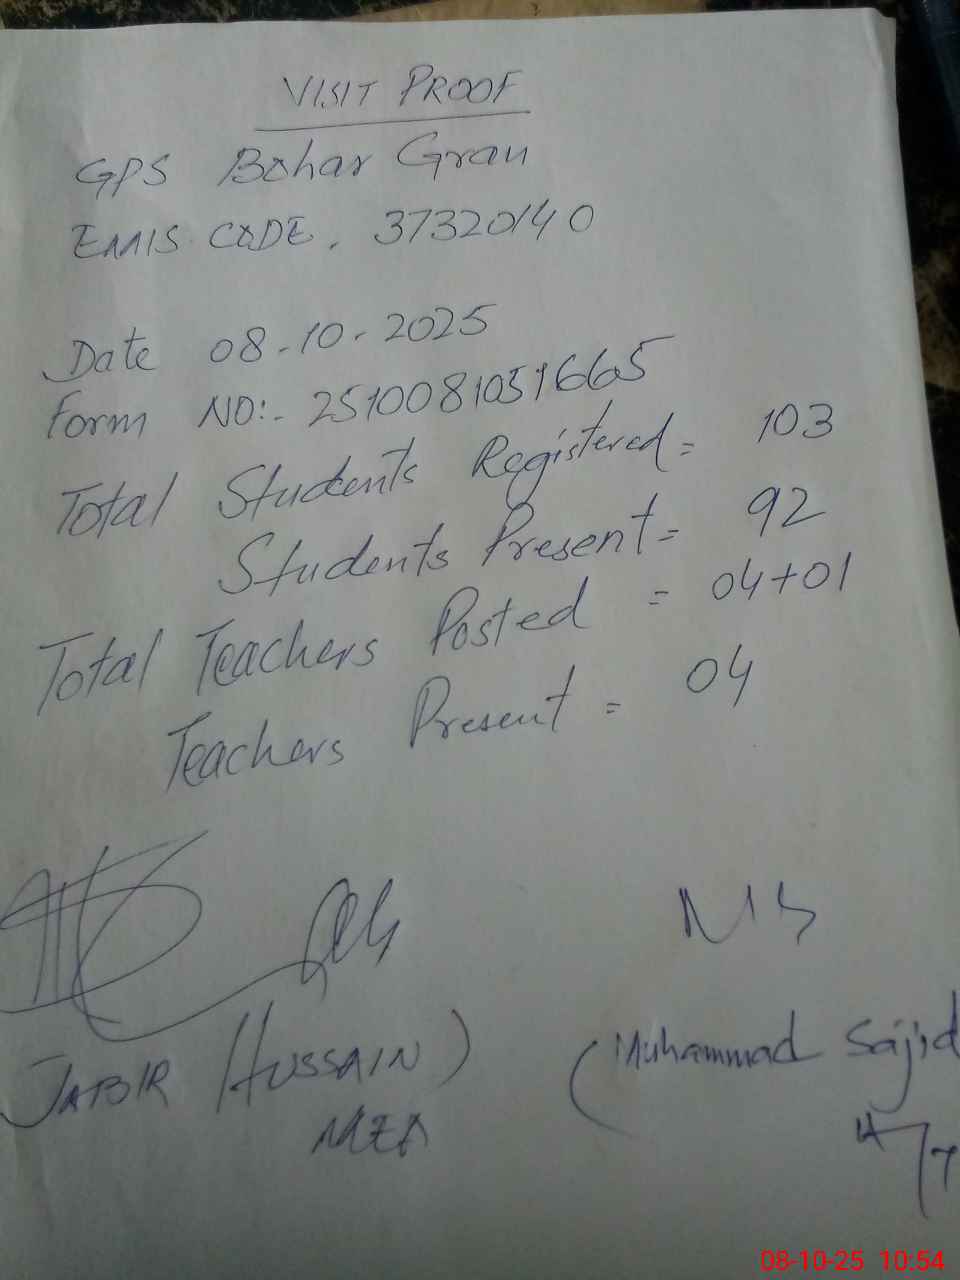 VISIT PROOF
GPS Bohar Gran
EMIS CODE. 37320140
Date 08-10-2025
Form NO:- 2510081051665
Total Students Registered = 103
Students Present = 92
Total Teachers Posted = 04+01
Teachers Present = 04
JABIR HUSSAIN) (Muhammad Sajid
MEA H/T
08-10-25 10:54